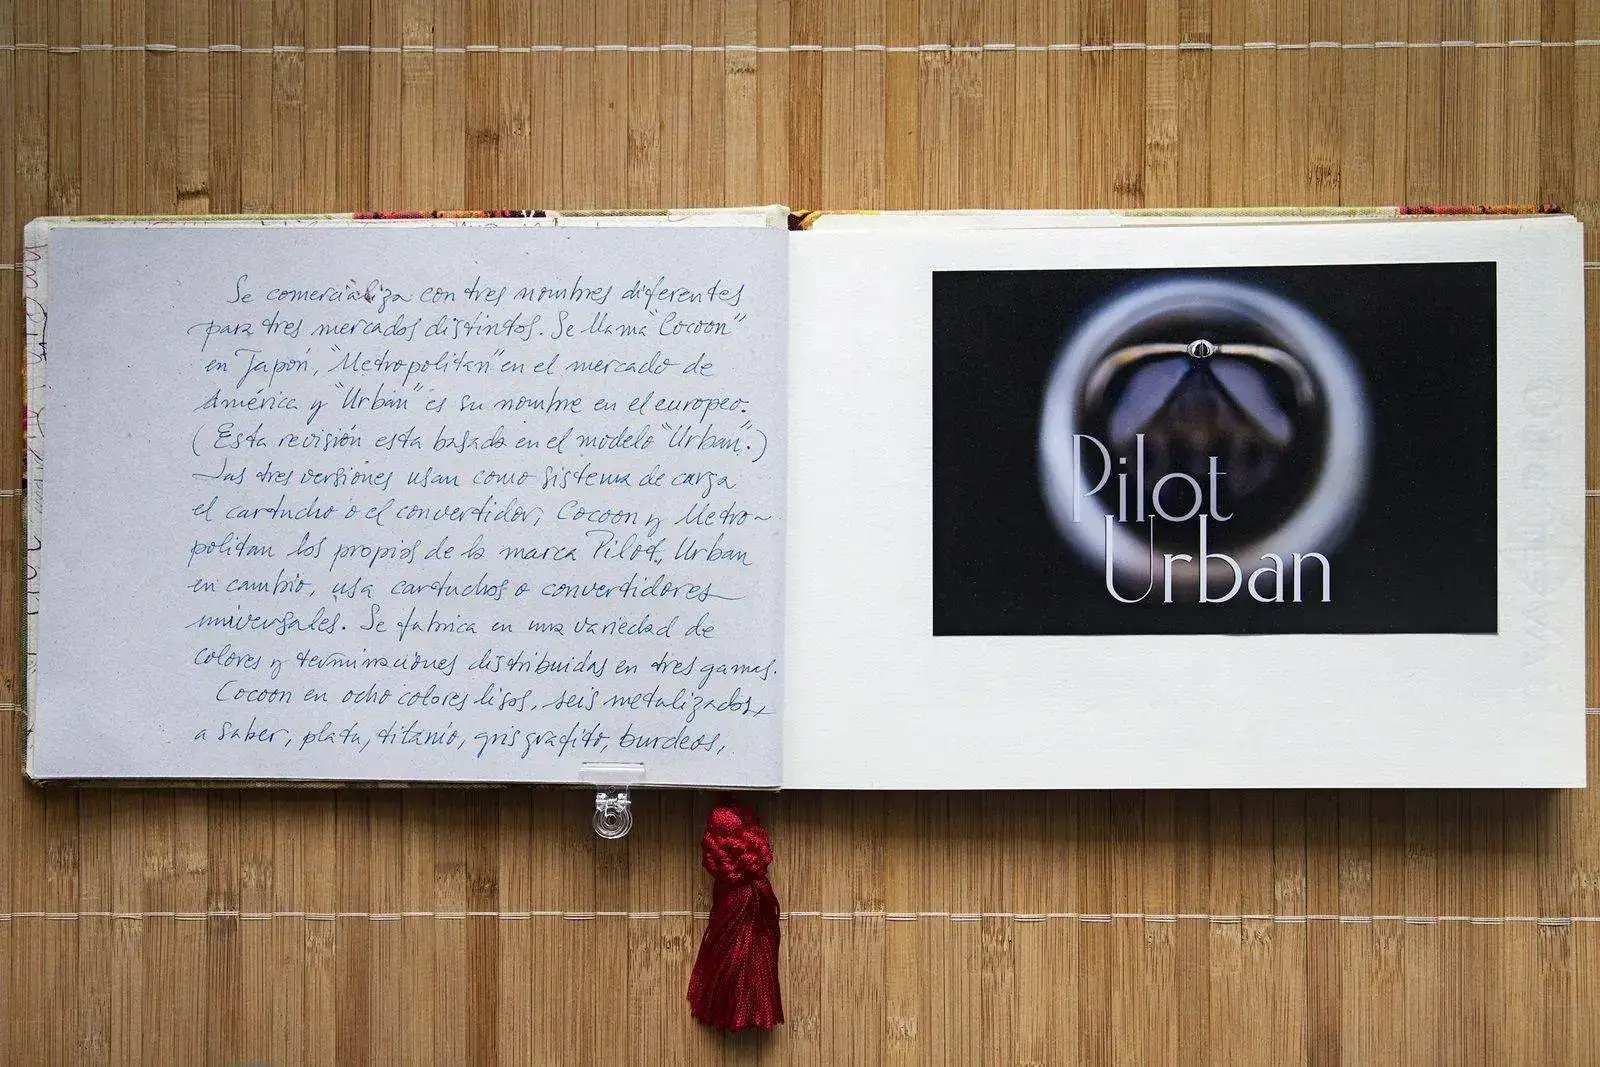 Se comercializa con tres nombres diferentes
para tres mercados distintos. Se llama "Cocoon"
en Japón, "Metropolitan" en el mercado de
América y "Urban" es su nombre en el europeo.
(Esta revisión esta basada en el modelo "Urban".)
Las tres versiones usan como sistema de carga
el cartucho o el convertidor, Cocoon y Metro-
politan los propios de la marca Pilot, Urban
en cambio, usa cartuchos o convertidores
universales. Se fabrica en una variedad de
colores y terminaciones distribuidas en tres gamas.
Cocoon en ocho colores lisos, seis metalizados,
a saber, plata, titanio, gris grafito, burdeos,
Pilot
Urban